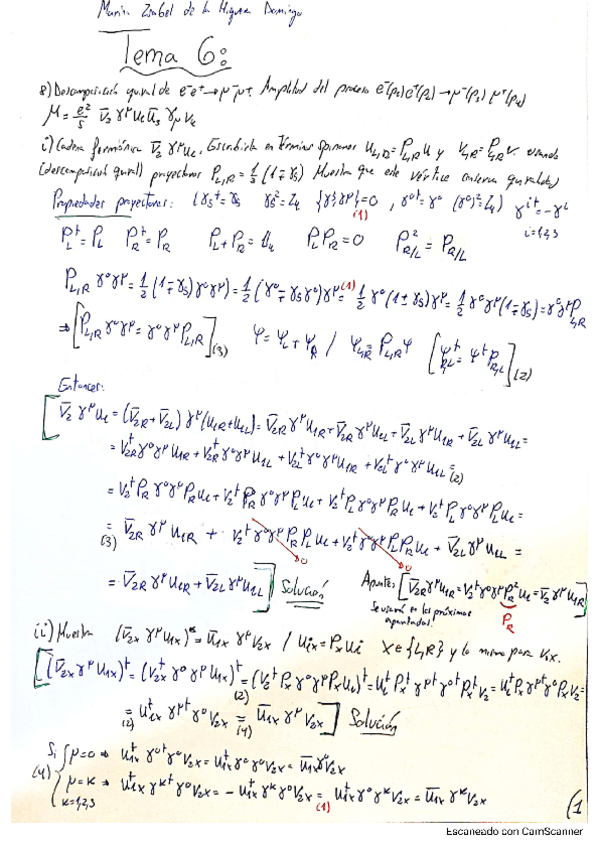 María Isabel de la Higuera Domingo
Tema 6:
8) Descomposición quiral de e⁻e⁺→μ⁻μ⁺. Amplitud del proceso e⁻(p₁)e⁺(p₂)→μ⁻(p₃) μ⁺(p₄)
M = e²/s v̄₂ γ^μ u₁ ū₃ γ_μ v₄
i) Cadena fermiónica v̄₂ γ^μ u₁. Escribirla en términos espinores u_{L,R}=P_{L,R} u y v_{L,R}=P_{L,R} v. usando
(descomposición quiral) proyectores P_{L,R} = 1/2 (1∓γ₅) Muestra que este vértice conserva quiralidad
Propiedades proyectores: (γ₅⁺=γ₅ γ₅²=𝟙₄ {γ⁵,γ^μ}=0 (1) , γ⁰⁺=γ⁰ (γ⁰)²=𝟙₄) γ^{i+}=-γ^i i=1,2,3
P_L⁺=P_L P_R⁺=P_R P_L+P_R=𝟙₄ P_L P_R=0 P²_{R/L}=P_{R/L}
P_{L,R} γ⁰γ^μ = 1/2 (1∓γ₅)γ⁰γ^μ = 1/2 (γ⁰∓γ₅γ⁰)γ^μ =(1) 1/2 γ⁰(1±γ₅)γ^μ = 1/2 γ⁰γ^μ(1∓γ₅)=γ⁰γ^μ P_{L,R}
⇒ [P_{L,R} γ⁰γ^μ = γ⁰γ^μ P_{L,R}] (3) ψ=ψ_L+ψ_R / ψ_{L,R}=P_{L,R} ψ [ψ⁺_{R,L}=ψ⁺P_{R,L}] (2)
Entonces:
[v̄₂ γ^μ u₁ = (v̄_{2R}+v̄_{2L}) γ^μ (u_{1R}+u_{1L}) = v̄_{2R} γ^μ u_{1R} + v̄_{2R} γ^μ u_{1L} + v̄_{2L} γ^μ u_{1R} + v̄_{2L} γ^μ u_{1L} =
= v⁺_{2R} γ⁰γ^μ u_{1R} + v⁺_{2R} γ⁰γ^μ u_{1L} + v⁺_{2L} γ⁰γ^μ u_{1R} + v⁺_{2L} γ⁰γ^μ u_{1L} =(2)
= v₂⁺ P_R γ⁰γ^μ P_R u₁ + v₂⁺ P_R γ⁰γ^μ P_L u₁ + v₂⁺ P_L γ⁰γ^μ P_R u₁ + v₂⁺ P_L γ⁰γ^μ P_L u₁ =
=(3) v̄_{2R} γ^μ u_{1R} + v₂⁺ γ⁰γ^μ P_R P_L u₁ + v₂⁺ γ⁰γ^μ P_L P_R u₁ + v̄_{2L} γ^μ u_{1L} =
0 0
= v̄_{2R} γ^μ u_{1R} + v̄_{2L} γ^μ u_{1L}] Solución
Apunte: [v̄_{2R} γ^μ u_{1R} = v₂⁺ γ⁰γ^μ P_R² u₁ = v̄₂ γ^μ u_{1R}]
P_R
Se usará en los próximos
apartados!
ii) Muestra (v̄_{2x} γ^μ u_{1x})* = ū_{1x} γ^μ v_{2x} / u_{ix}=P_x u_i x∈{L,R} y lo mismo para v_{ix}.
[(v̄_{2x} γ^μ u_{1x})⁺ = (v⁺_{2x} γ⁰γ^μ u_{1x})⁺ =(2) (v₂⁺ P_x γ⁰γ^μ P_x u₁)⁺ = u₁⁺ P_x⁺ γ^{μ+} γ⁰⁺ P_x⁺ v₂ = u₁⁺ P_x γ^{μ+} γ⁰ P_x v₂ =
=(2) u⁺_{1x} γ^{μ+} γ⁰ v_{2x} =(4) ū_{1x} γ^μ v_{2x}] Solución
Si (4) { μ=0 ⇒ u⁺_{1x} γ⁰⁺ γ⁰ v_{2x} = u⁺_{1x} γ⁰γ⁰ v_{2x} = ū_{1x} γ⁰ v_{2x}
μ=k ⇒ u⁺_{1x} γ^{k+} γ⁰ v_{2x} = - u⁺_{1x} γ^k γ⁰ v_{2x} =(1) u⁺_{1x} γ⁰ γ^k v_{2x} = ū_{1x} γ^k v_{2x}
k=1,2,3
(1
Escaneado con CamScanner